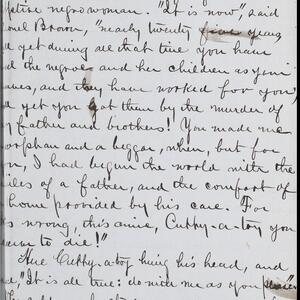 negro woman. "It is now", said
Brown, "nearly twenty five years
get during all that time you have
the negros and her children as your
and they have worked for you,
yet you got them by the murder of
father and brothers! You made me
orphan and a beggar, when, but for
I had begun the world with the
of a father, and the comfort of
home provided by his care. For
wrong, this anie, Cuthy-a-toy you
to die!"
The Cuthy-a-toy hung his head, and
"It is all true: do with me as you please"